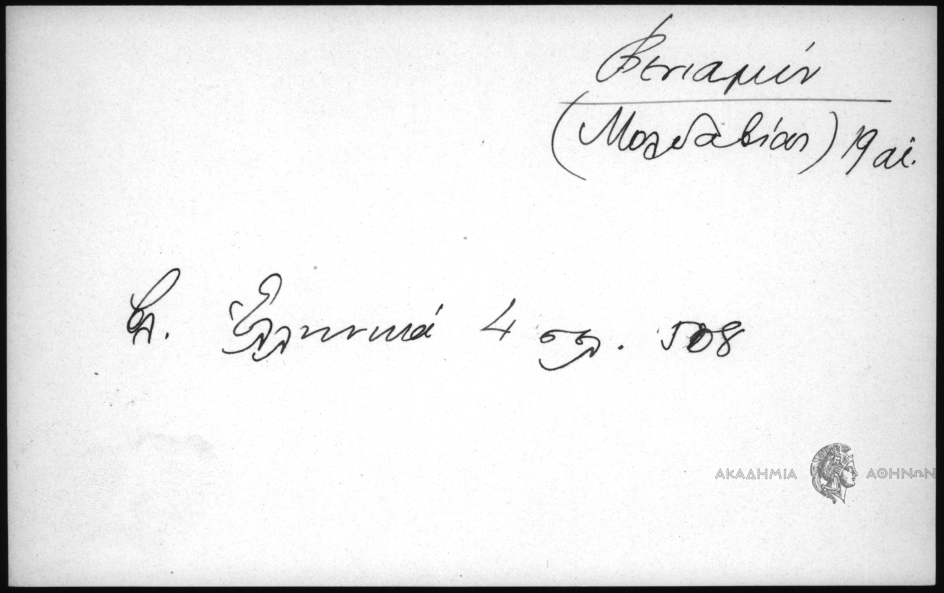 Βενιαμίν
(Μολδαβίας) 19 αἰ.
βλ. Ἑλληνικά 4 σελ. 508
ΑΚΑΔΗΜΙΑ ΑΘΗΝΩΝ